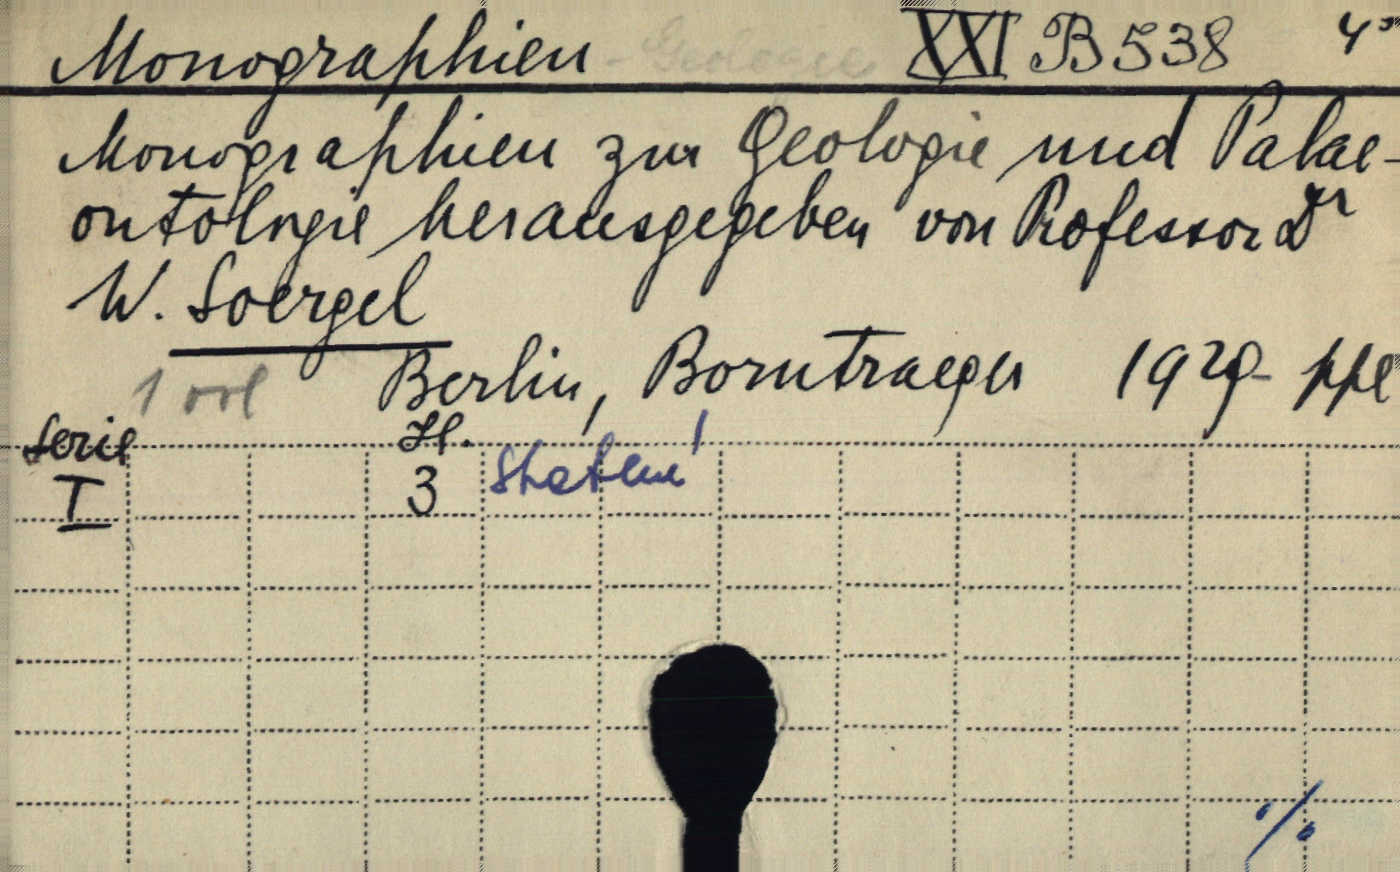 Monographien - Geologie XXI B 538 4°
Monographien zur Geologie und Palae-
ontologie herausgegeben von Professor Dr
W. Soergel
1 vol Berlin, Borntraeger 1929- ppl
Serie H.
I 3
·/·